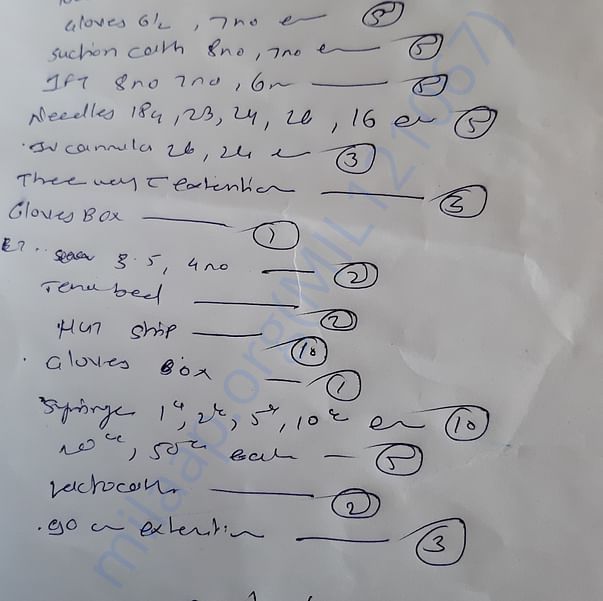 Gloves 6½, 7no en — 5
suction cath 8no, 7no en — 5
IFT 8no 7no, 6n — 5
Needles 18g, 23, 24, 26, 16 en — 5
IV cannula 26, 24 en — 3
Three way c extention — 3
Gloves Box — 1
ET 3.5, 4no — 2
— 2
strip — 10
Gloves Box — 1
Syringe 1cc, 2cc, 5cc, 10cc en — 10
20cc, 50cc each — 5
— 2
90 cm extention — 3
milaap.org(MIL121067)